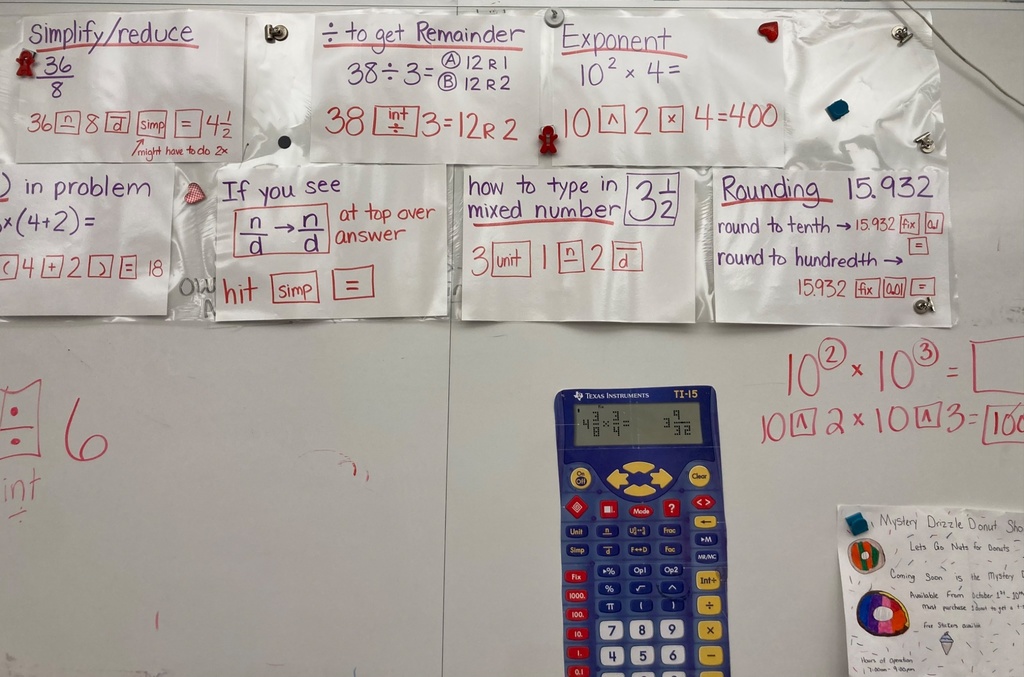 Simplify/reduce
36
8
36 n 8 d simp = 4 1/2
might have to do 2x
÷ to get Remainder
38 ÷ 3 = A 12 R 1
B 12 R 2
38 int ÷ 3 = 12 R 2
Exponent
10² × 4 =
10 ^ 2 × 4 = 400
) in problem
×(4+2)=
( 4 + 2 ) = 18
If you see
n/d → n/d at top over
answer
hit simp =
how to type in
mixed number 3 1/2
3 unit 1 n 2 d
Rounding 15.932
round to tenth → 15.932 fix 0.1
=
round to hundredth →
15.932 fix 0.01 =
÷ 6
int
÷
10² × 10³ =
10 ^ 2 × 10 ^ 3 =
TEXAS INSTRUMENTS TI-15
4 3/8 × 3/4 = 3 9/32
On Off Clear
Mode ?
Unit n Frac
Simp d F↔D Fac ▸M
▸% Op1 Op2 MR/MC
Fix % √ ^ Int÷
1000. π ( ) ÷
100. 7 8 9 ×
10.
1. 4 5 6 −
0.1
Mystery Drizzle Donut Sho
Lets Go Nuts for Donuts
Coming Soon is the Mystery
Available From October 1st - 10th
must purchase
Free Stickers
Hours of Operation